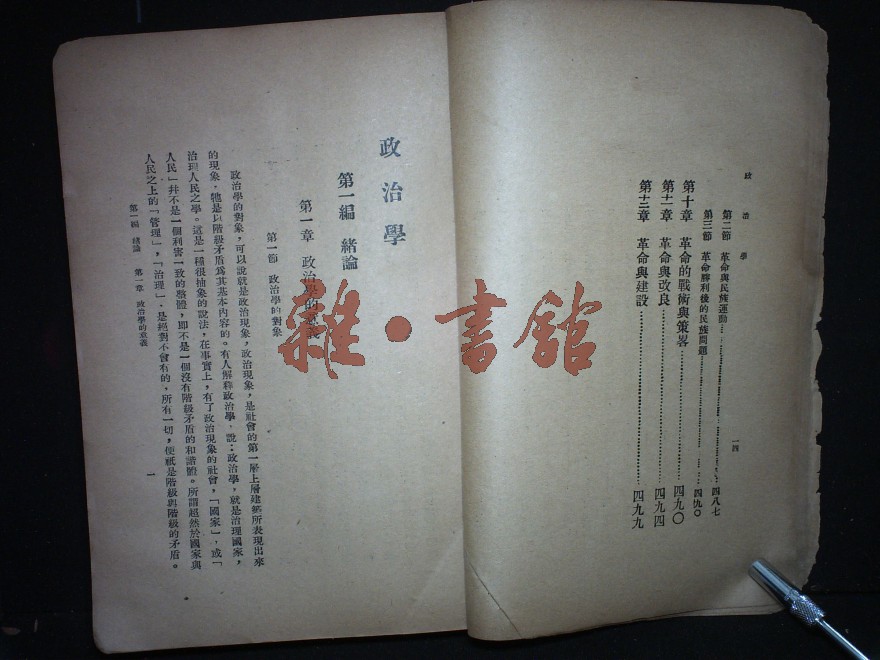 政治學
第二節 革命與民族運動……四八七
第三節 革命勝利後的民族問題……四九〇
第十章 革命的戰術與策畧……四九〇
第十一章 革命與改良……四九四
第十二章 革命與建設……四九九
一四
政治學
第一編 緒論
第一章 政治學的意義
第一節 政治學的對象
政治學的對象，可以說就是政治現象，政治現象，是社會的第一層上層建築所表現出來
的現象，牠是以階級矛盾爲其基本內容的。有人解釋政治學，說：政治學，就是治理國家，
治理人民之學。這是一種很抽象的說法，在事實上，有了政治現象的社會，「國家」，或「
人民」幷不是一個利害一致的整體，即不是一個沒有階級矛盾的和諧體。所謂超然於國家與
人民之上的「管理」，「治理」，是絕對不會有的，所有一切，便祇是階級與階級的矛盾。
第一編 緒論 第一章 政治學的意義
一
雜·書館